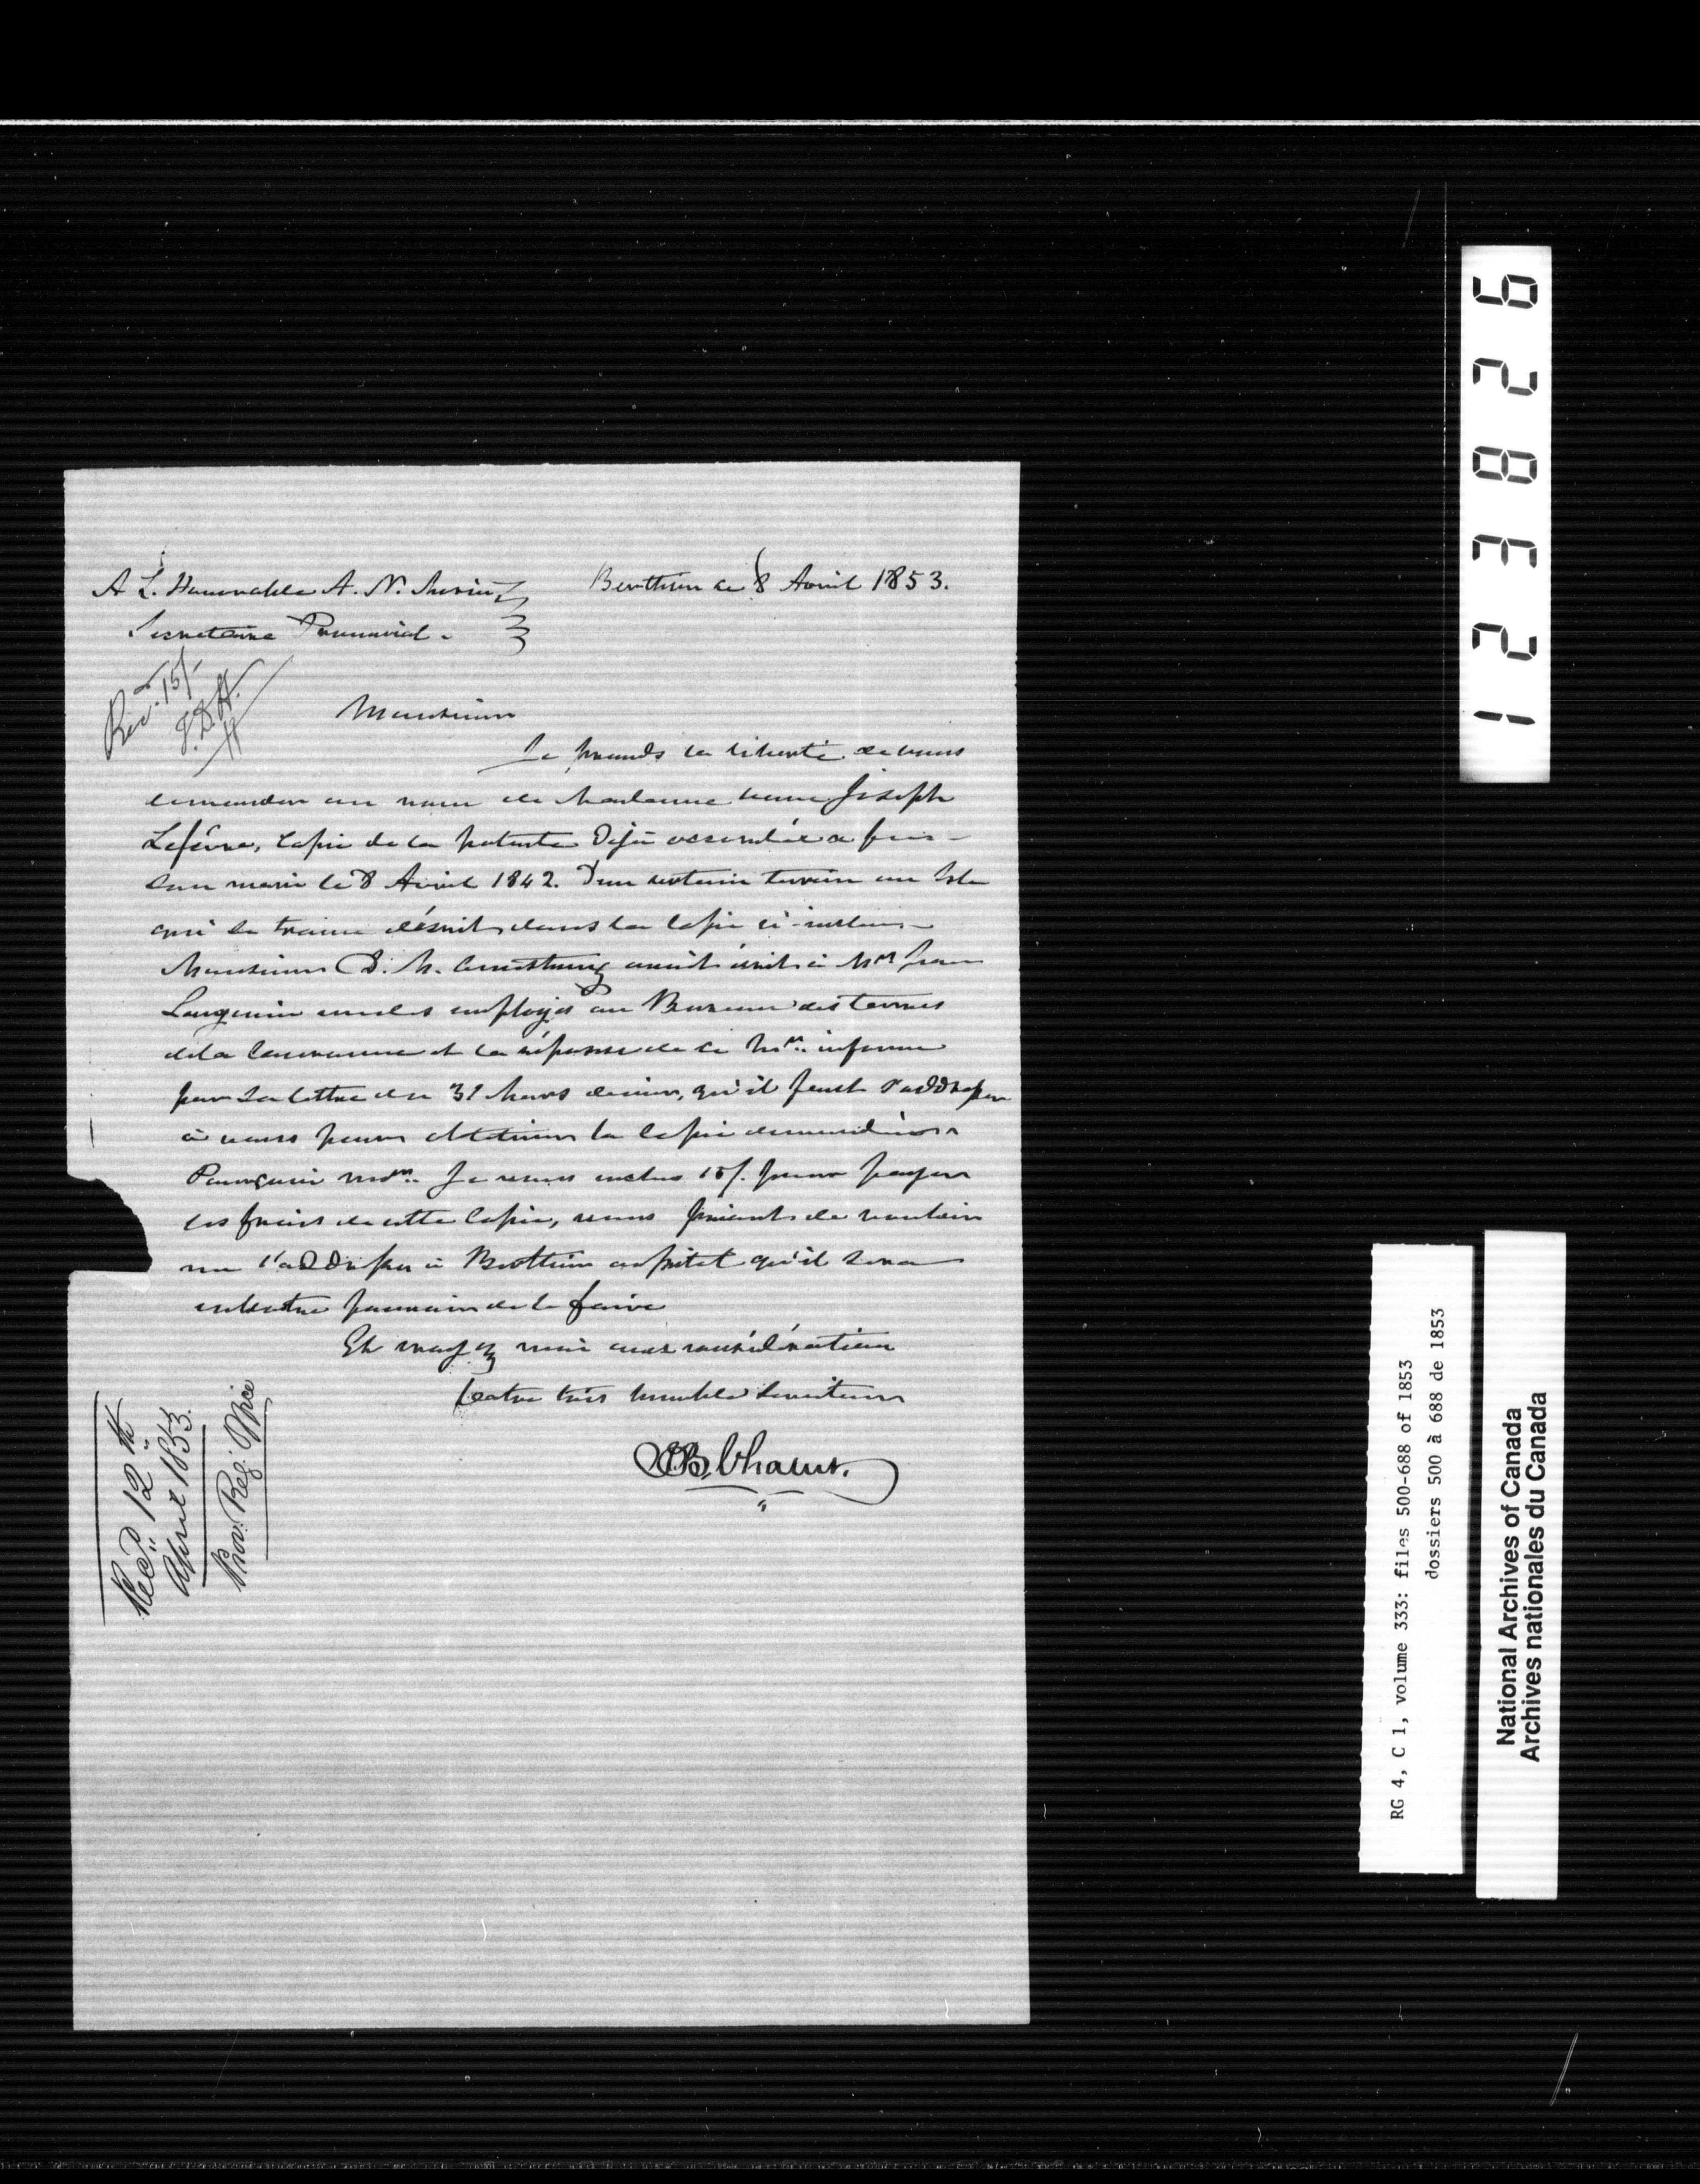 A L'Honorable A. N. Morin
Berthier ce 8 Avril 1853.
Secretaire Provincial.
Rec. 15/-
Monsieur
Je prends la liberté de vous
demander au nom de Madame veuve Joseph
Lefévre, Copie de la patente Déjà accordée a feu
Son mari le 8 Avril 1842. D'un certain terrain en Isle
qui se trouve décrit dans la Copie ci-incluse
Monsieur D. M. Armstrong avait écrit à Mr Jean
Langevin un des employés au Bureau des terres
de la Couronne et la réponse de ce Mr. informe
par sa lettre du 31 Mars dernier, qu'il faut s'addresser
à vous pour obtenir la Copie demandée
Pourquoi Mr. Je vous inclus 15/. pour payer
les frais de cette Copie, vous priant de vouloir
me l'addresser à Berthier aussitot qu'il sera
en votre pouvoir de le faire
Et croyez moi avec considération
Votre très humble Serviteur
Recd. 12th
April 1853.
Prov. Reg. Office
1 2 3 8 2 6
RG 4, C 1, volume 333: files 500-688 of 1853
dossiers 500 à 688 de 1853
National Archives of Canada
Archives nationales du Canada